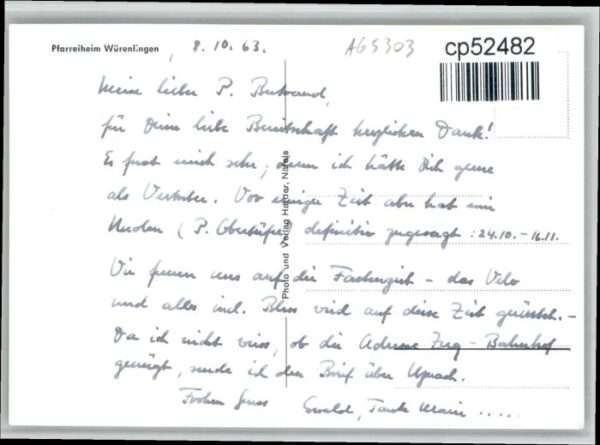 Pfarreiheim Würenlingen
8.10.63.
AG5303
cp52482
Mein lieber P. Bertrand,
für Deine liebe Bereitschaft herzlichen Dank!
Es freut mich sehr, denn ich hätte Dich gerne
als Vertreter. Vor einiger Zeit aber hat mir
Nuolen (P. definitiv zugesagt: 24.10. – 16.11.
Wir freuen uns auf die – das Velo
und alles incl. Bless wird auf diese Zeit –
Da ich nicht weiss, ob die Adresse Zug – Bahnhof
genügt, sende ich den Brief über Uznach.
Frohen Gruss Ewald, Tante Marie .....
Photo und Verlag Harder, Näfels